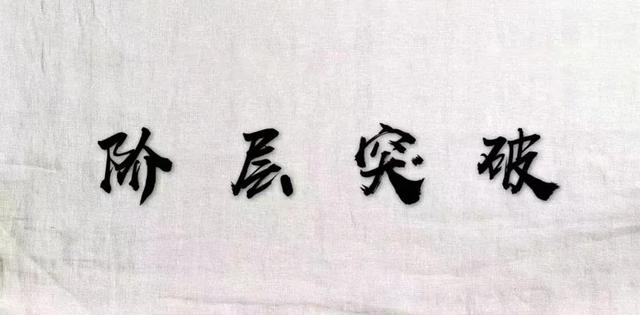 阶层突破